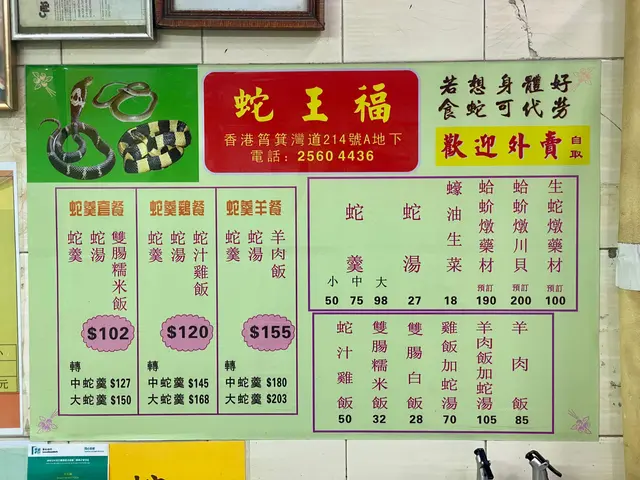 蛇王福
香港筲箕灣道214號A地下
電話：2560 4436
若想身體好
食蛇可代勞
歡迎外賣 自取
蛇羹套餐
雙腸糯米飯
蛇湯
蛇羹
$102
轉
中蛇羹 $127
大蛇羹 $150
蛇羹雞餐
蛇汁雞飯
蛇湯
蛇羹
$120
轉
中蛇羹 $145
大蛇羹 $168
蛇羹羊餐
羊肉飯
蛇湯
蛇羹
$155
轉
中蛇羹 $180
大蛇羹 $203
生蛇燉藥材 預訂 100
蛤蚧燉川貝 預訂 200
蛤蚧燉藥材 預訂 190
蠔油生菜 18
蛇湯 27
蛇羹
小 中 大
50 75 98
羊肉飯 85
羊肉飯加蛇湯 105
雞飯加蛇湯 70
雙腸白飯 28
雙腸糯米飯 32
蛇汁雞飯 50
小
元